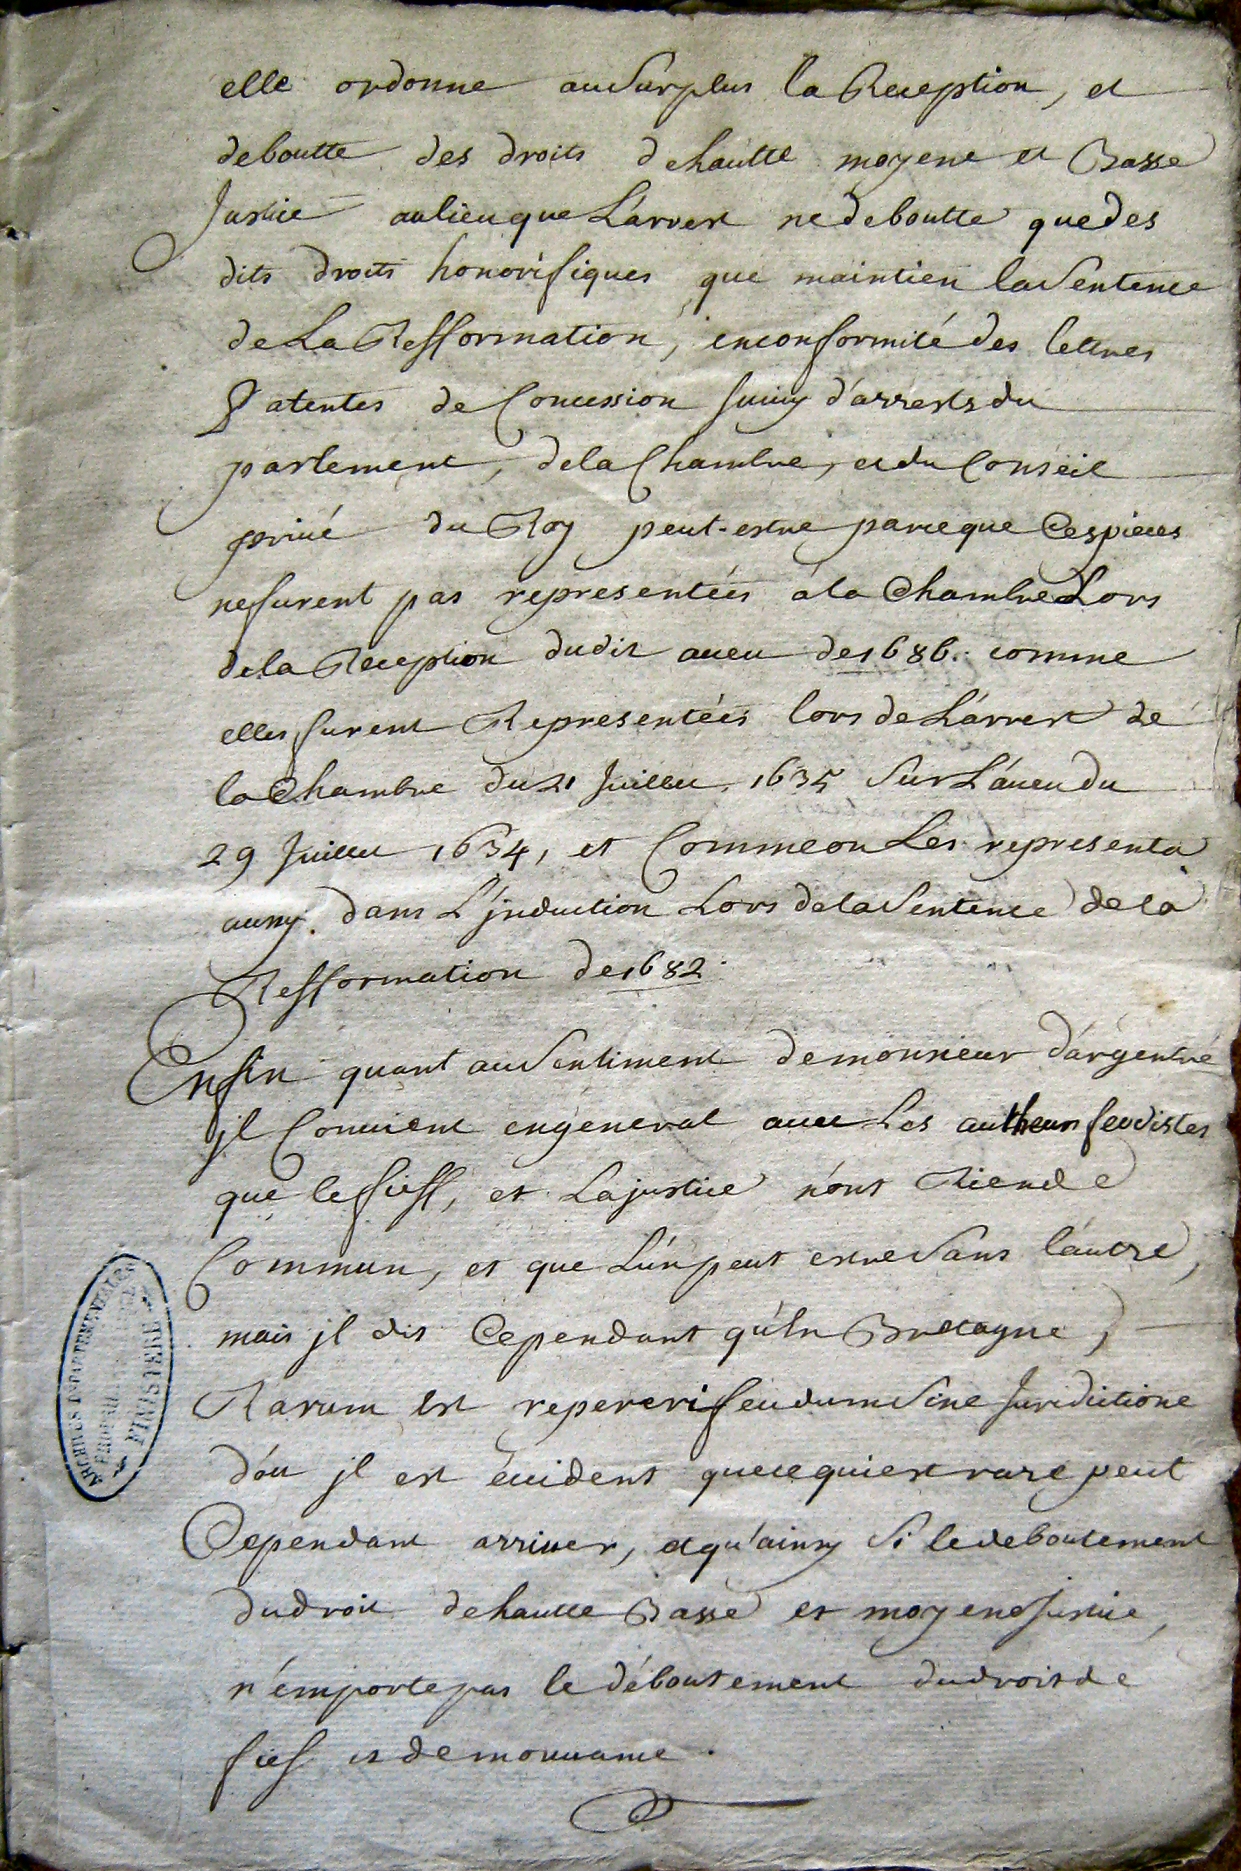 elle ordonne au surplus la Reception, et
deboutte des droits de hautte moyene et Basse
Justice au lieu que L'arrest ne deboutte que des
dits droits honorifiques que maintien la Sentence
de La Refformation, en conformité des lettres
Patentes de Concession suivy d'arrests du
parlement, de la Chambre, et du Conseil
privé du Roy peut-estre parce que Ces pieces
ne furent pas representées a la Chambre Lors
de la Reception dudit aveu de 1686. comme
elles furent Representées lors de L'arrest de
la Chambre du 21 Juillet 1635 Sur L'aveu du
29 Juillet 1634, et Comme on Les representa
aussy dans L'jnduction Lors de la Sentence de la
Refformation de 1682.
Enfin quant au Sentiment de monsieur d'argentré
jl Convient en general avec Les autheurs feudistes
que le fieff, et La justice n'ont Rien de
Commun, et que L'un peut estre Sans l'autre,
mais jl dit Cependant qu'En Bretagne,
Rarum Est repereri feudum Sine Juridictione
d'ou jl est évident que ce qui est rare peut
Cependant arriver, et qu'ainsy Si le deboutement
du droit de hautte Basse et moyene Justice,
n'emporte pas le déboutement du droit de
fief et de mouvance.
ARCHIVES DEPARTEMENTALES
FINISTERE